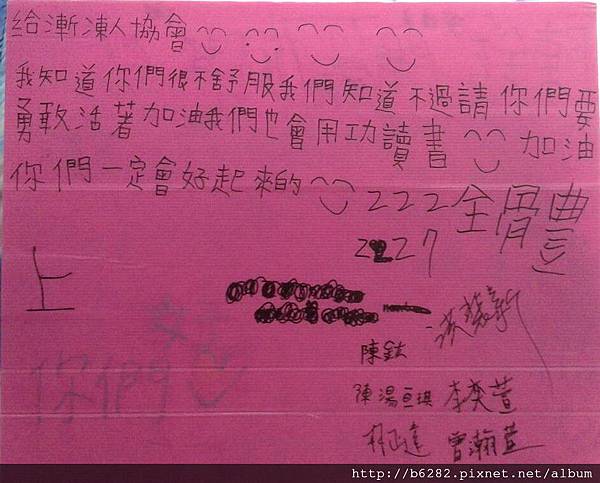 給漸凍人協會
我知道你們很不舒服我們知道不過請你們要
勇敢活著加油我們也會用功讀書 加油
你們一定會好起來的 222全骨豊
2227
上
陳鈦
陳湯亘琪 李奕萱
曾瀚萱
你們
http://b6282.pixnet.net/album